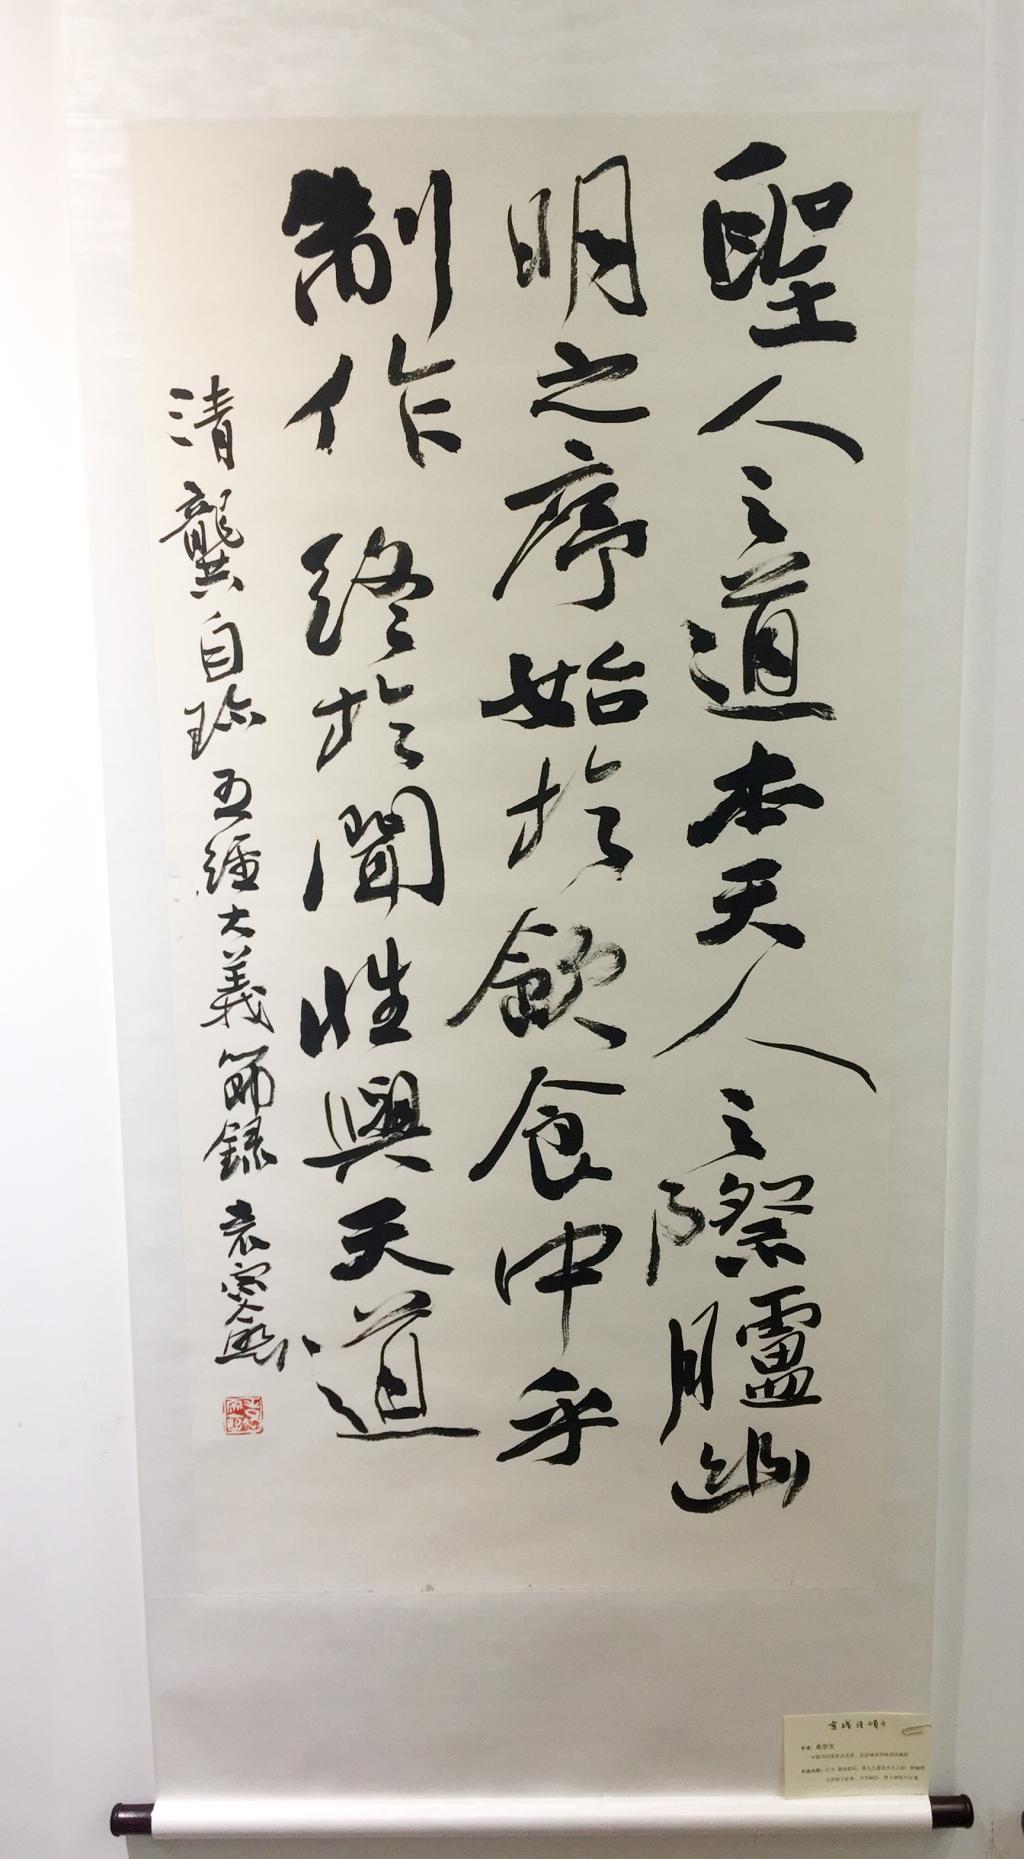 聖人之道本天人之際臚幽
明之序始於飲食中乎
制作終於聞性與天道
清龔自珍五經大義節錄